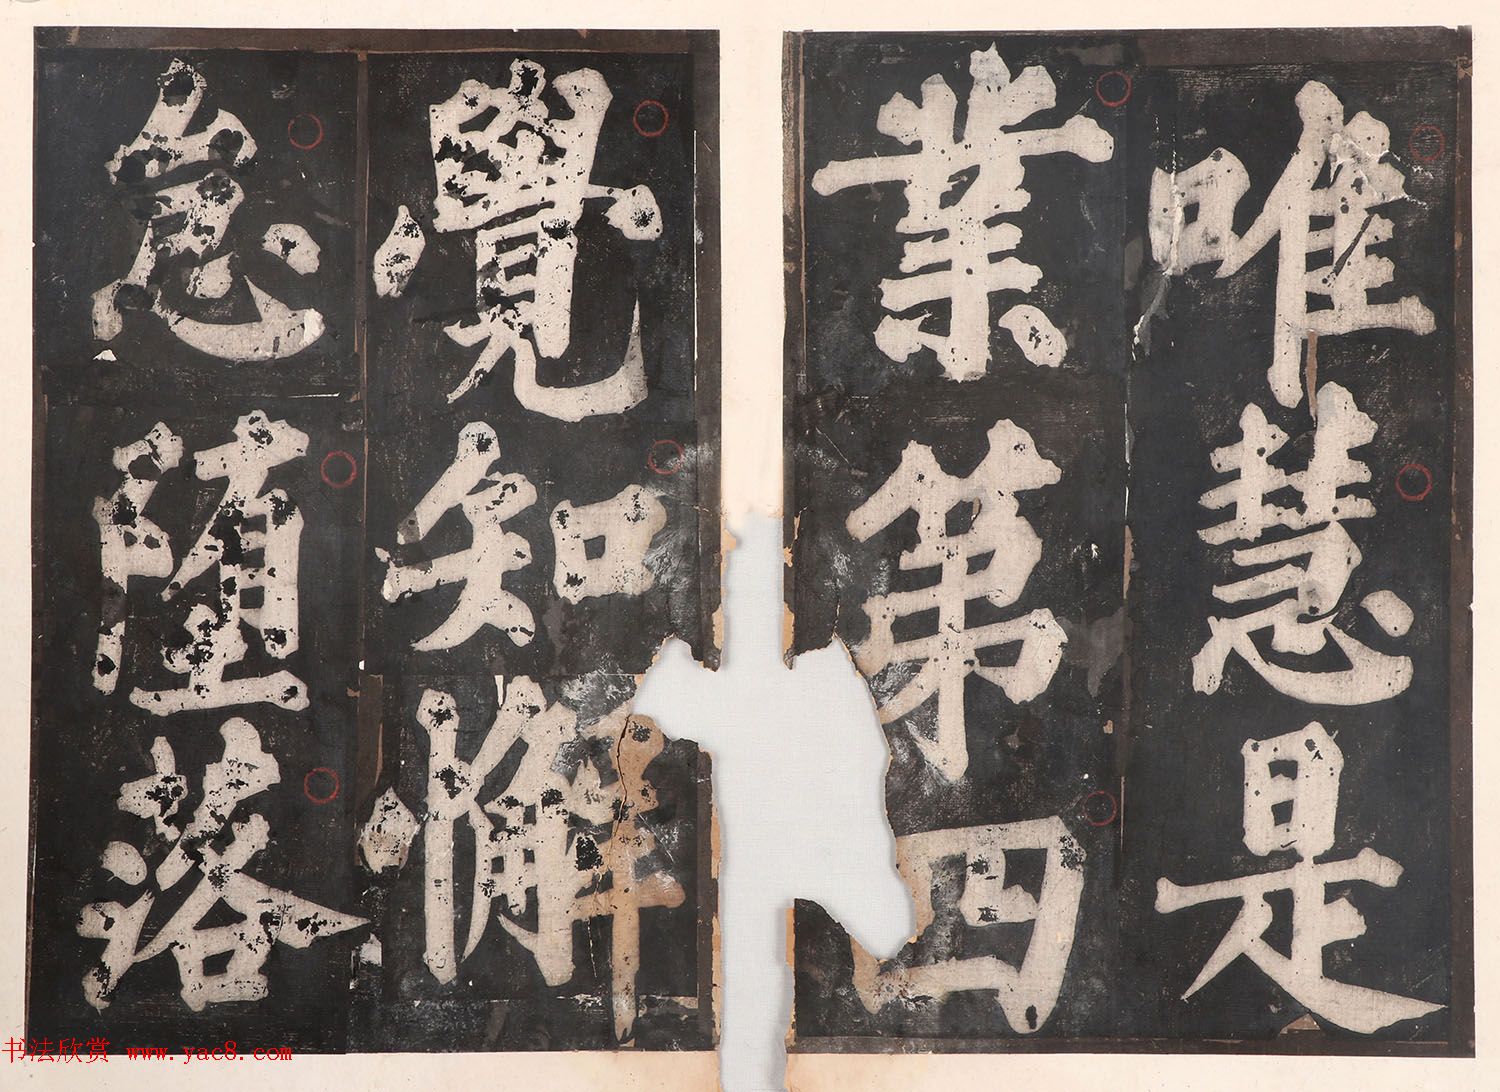 唯慧是
業第四
覺知懈
怠堕落
书法欣赏 www.yac8.com